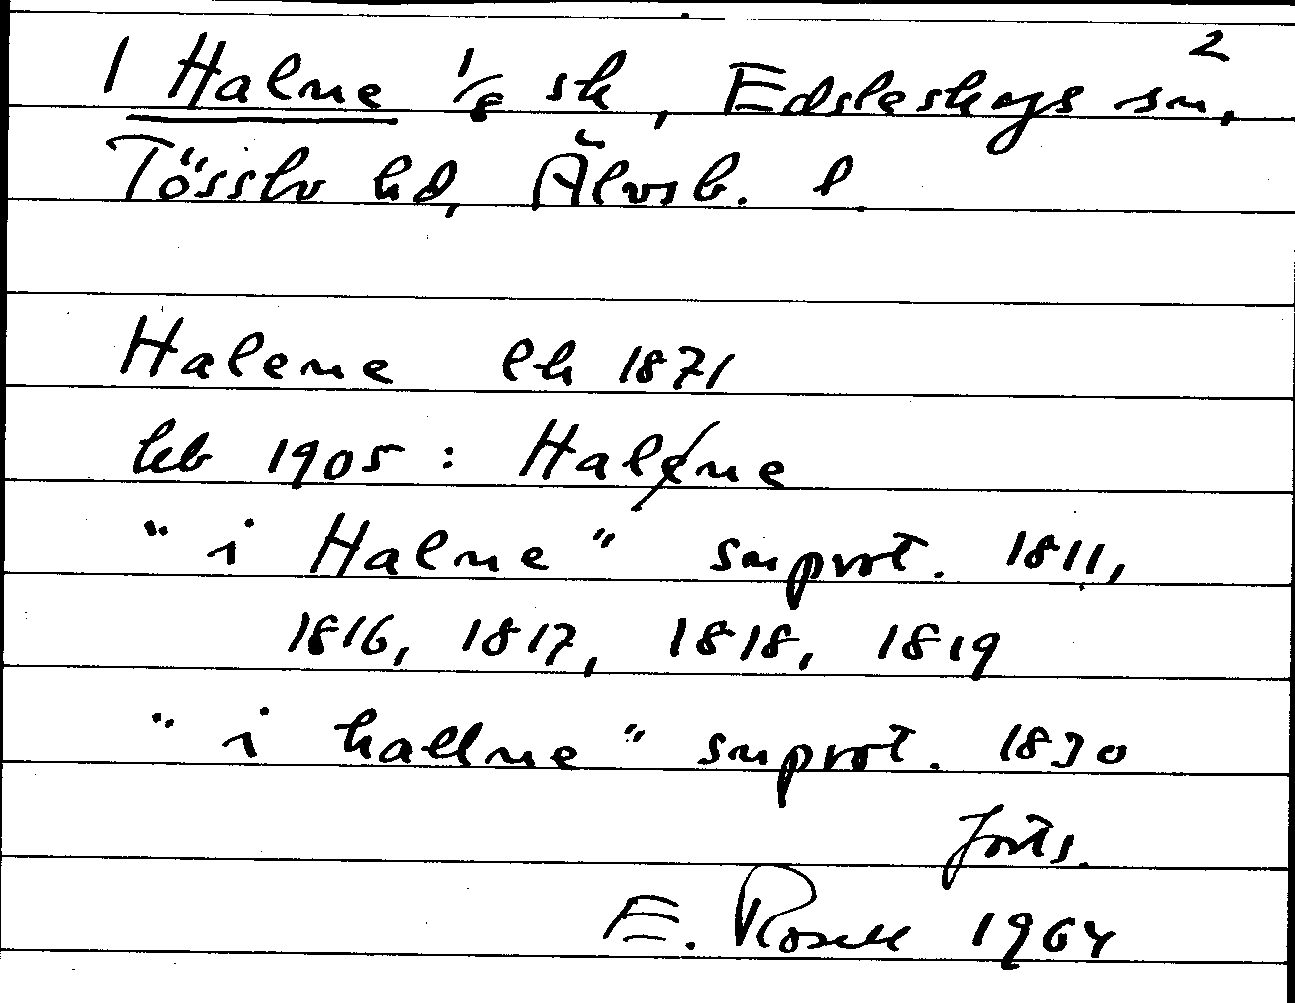 2
1 Halne 1/8 sk, Edsleskogs sn,
Tössbo hd, Älvsb. l.
Halene lk 1871
hlb 1905 : Halene
"i Halne" snprot. 1811,
1816, 1817, 1818, 1819
"i hallne" snprot. 1830
forts.
E. Rosell 1964